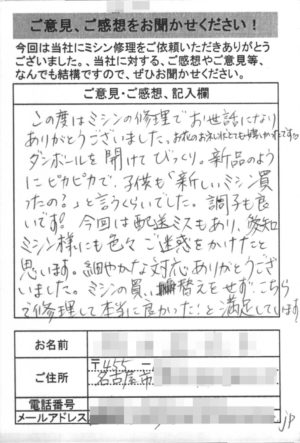 ご意見、ご感想をお聞かせください!
今回は当社にミシン修理をご依頼いただきありがとう
ございました。当社に対する、ご感想やご意見等、
なんでも結構ですので、ぜひお聞かせください。
ご意見・ご感想、記入欄
この度はミシンの修理でお世話になり
ありがとうございました。お礼のお品もとても嬉しかったです
ダンボールを開けてびっくり。新品のよう
にピカピカで、子供も「新しいミシン買
ったの?」と言うくらいでした。調子も良
いです。今回は配送ミスもあり、愛知
ミシン様にも色々ご迷惑をかけたと
思います。細やかな対応ありがとうござ
いました。ミシンの買い替えをせず、こちら
で修理して本当に良かった!と満足しています
お名前
ご住所
〒455-
名古屋市
電話番号
メールアドレス
jp